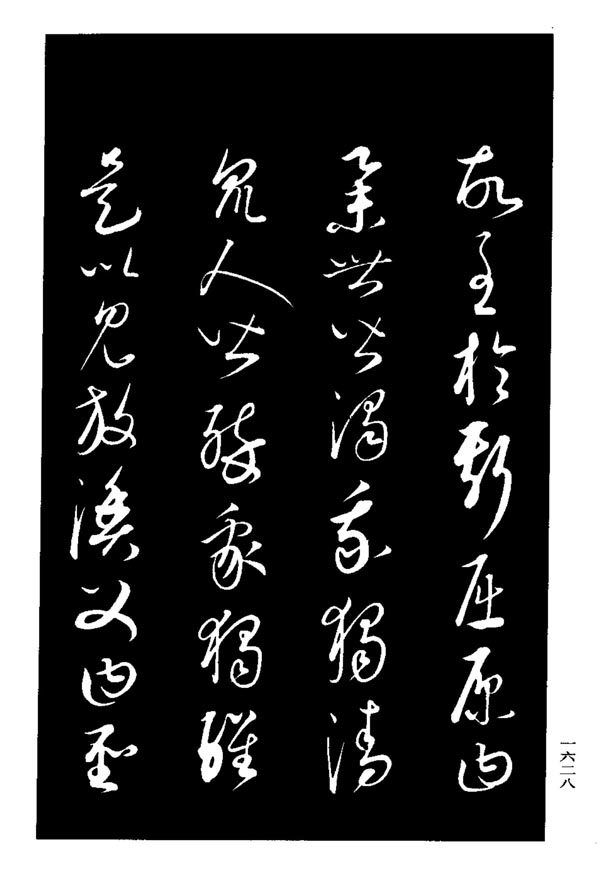 故至於斯屈原曰
舉世皆濁我獨清
衆人皆醉我獨醒
是以見放漁父曰聖
一六二八